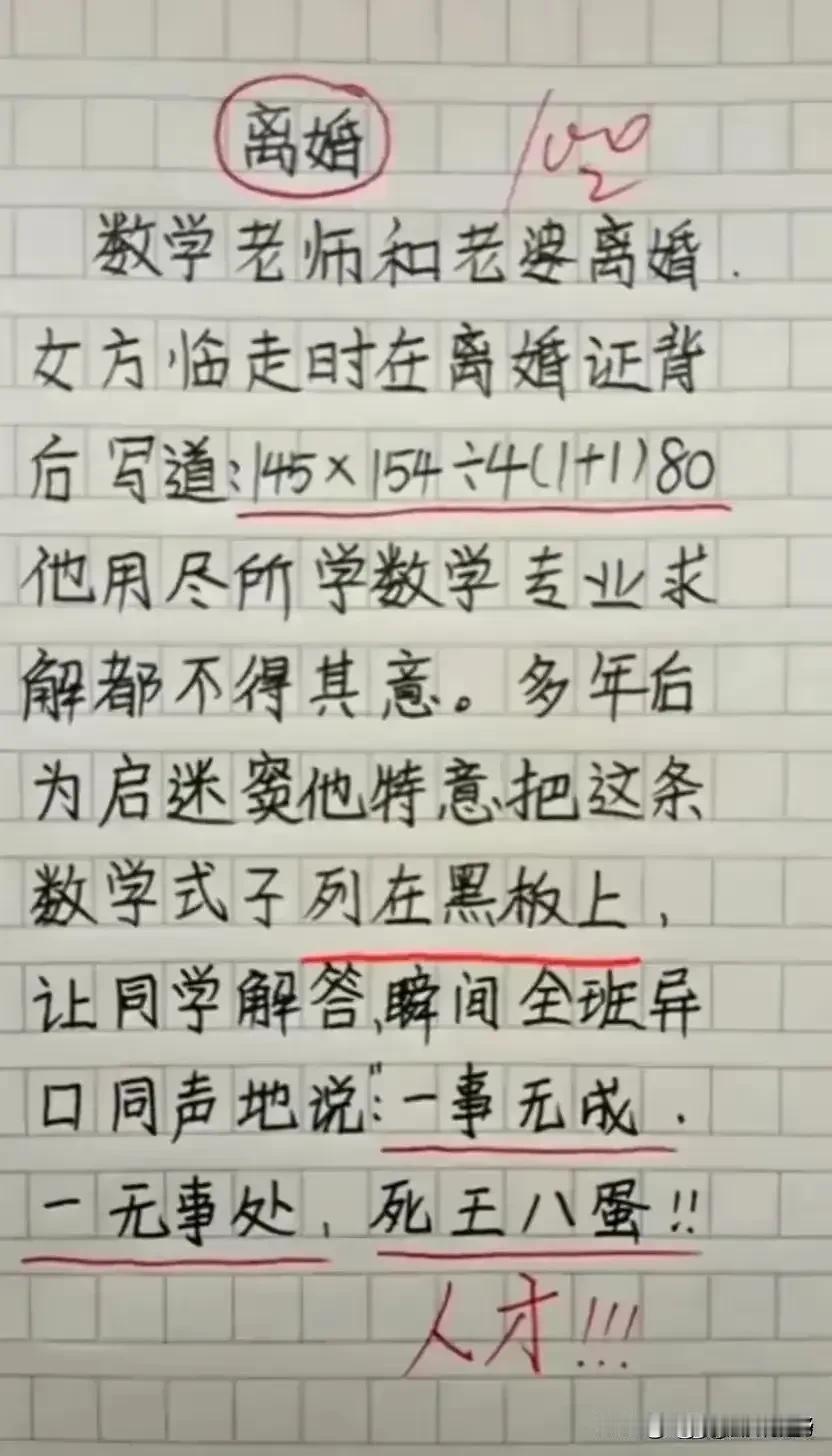 离婚 100
数学老师和老婆离婚.
女方临走时在离婚证背
后写道:145×154÷4(1+1)80
他用尽所学数学专业求
解都不得其意。多年后
为启迷窦他特意把这条
数学式子列在黑板上,
让同学解答,瞬间全班异
口同声地说":一事无成.
一无事处,死王八蛋!!
人才!!!